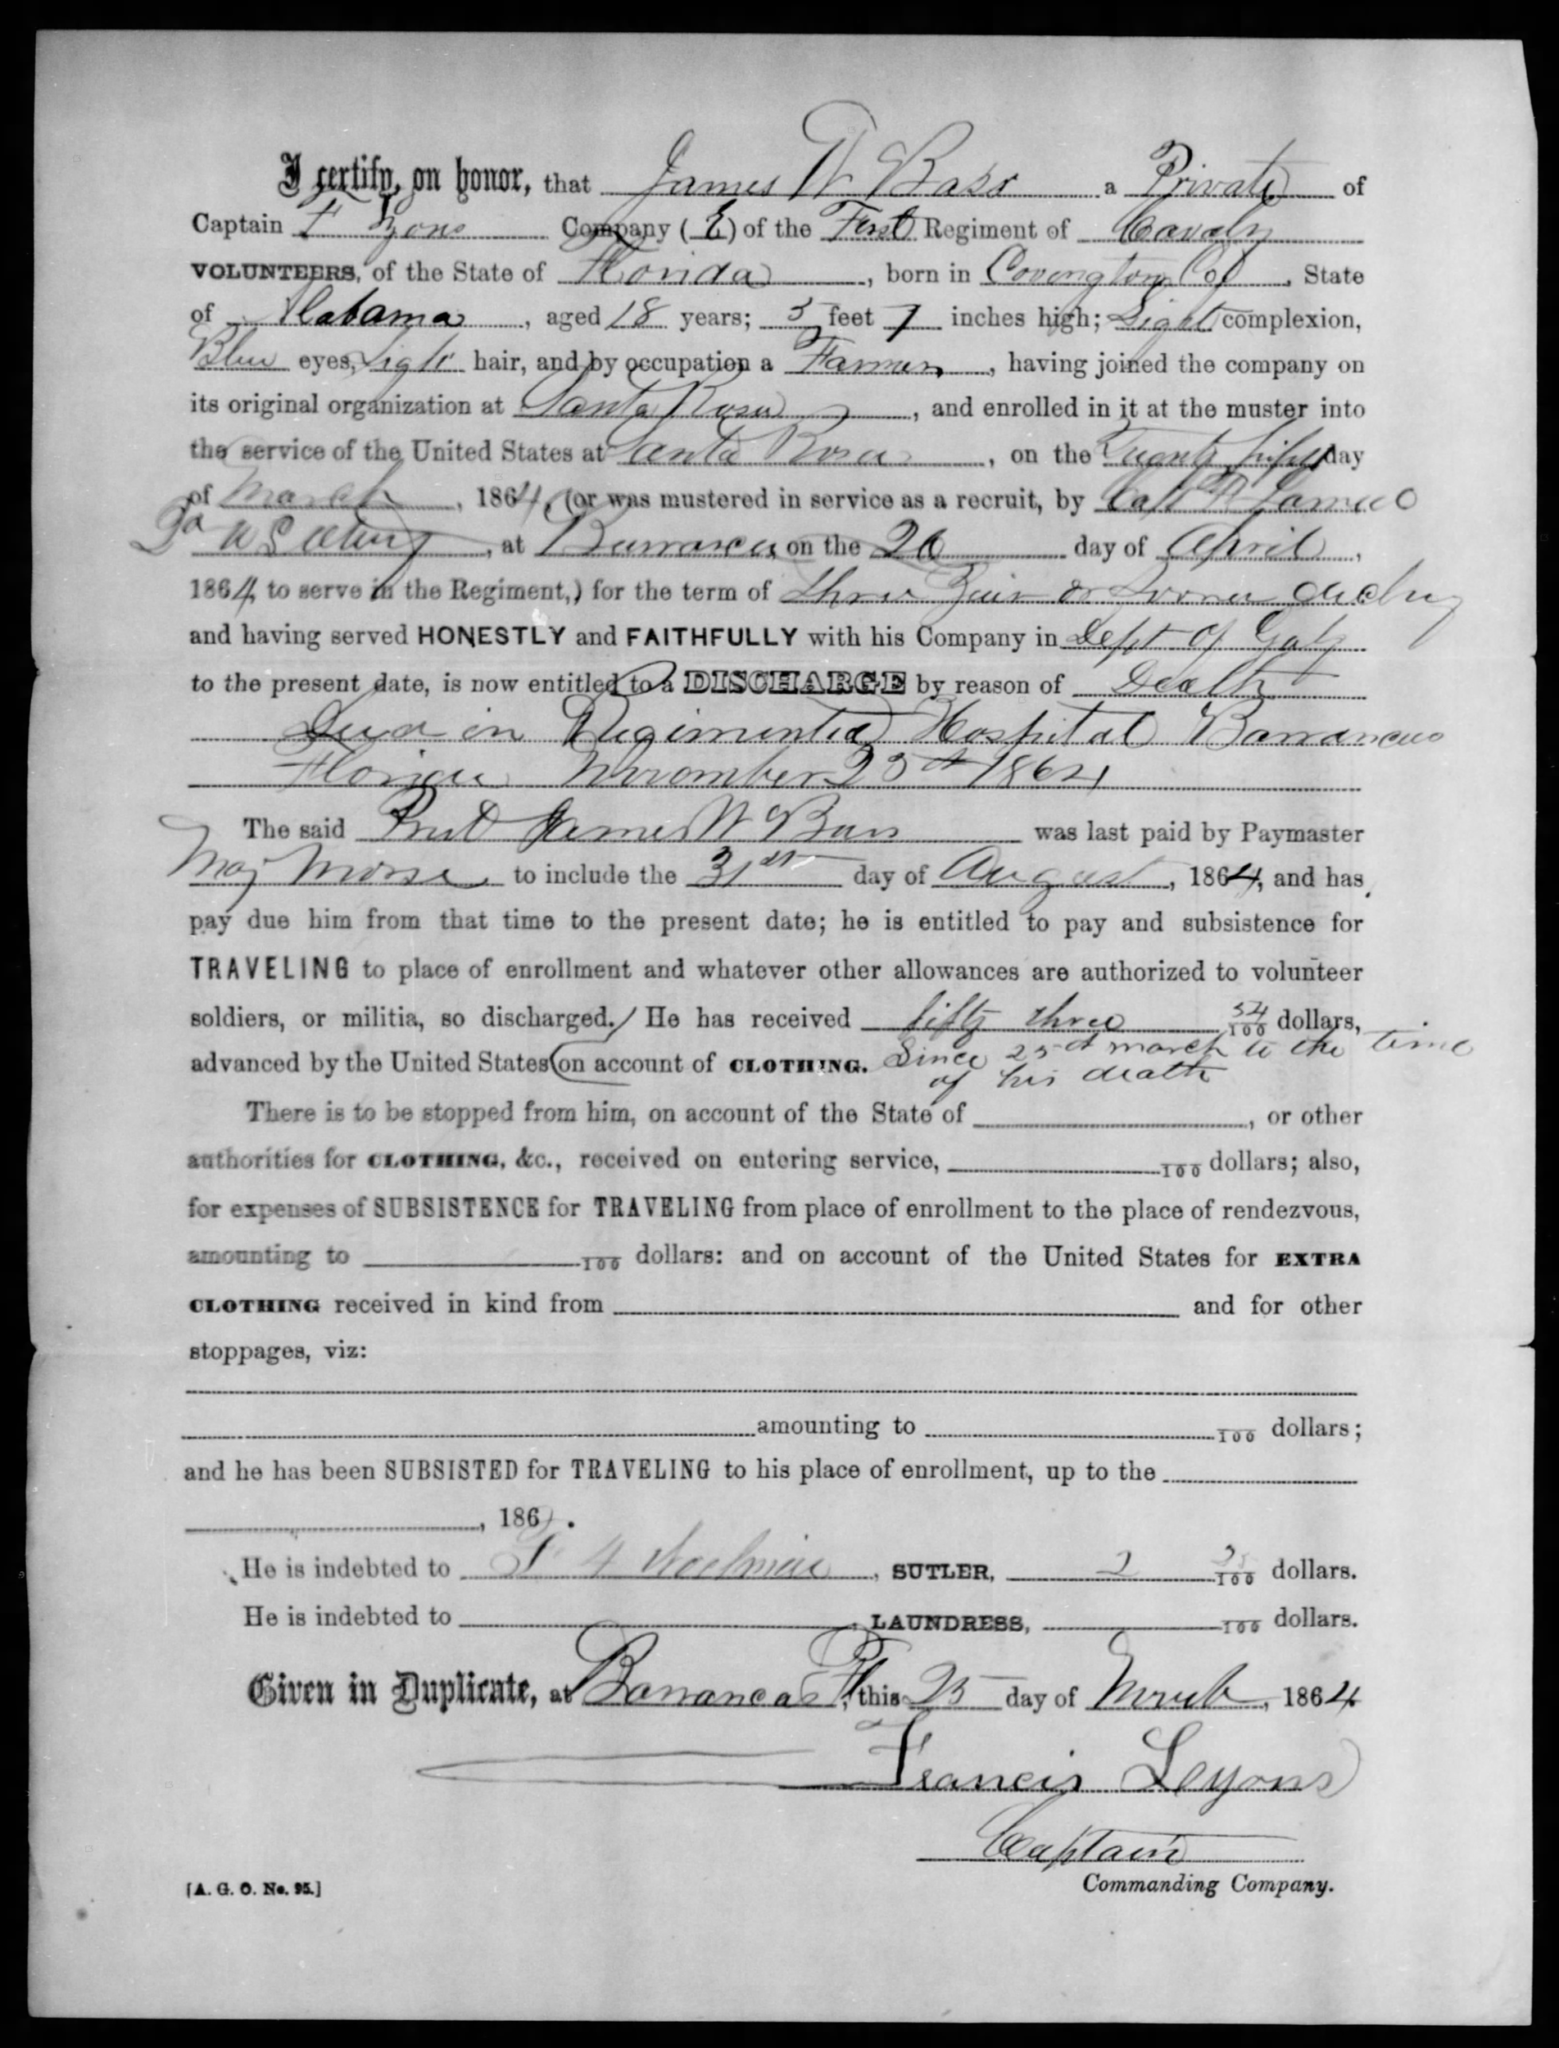 I certify, on honor, that James W Bass a Private of
Captain F Lyons Company (E) of the First Regiment of Cavalry
VOLUNTEERS, of the State of Florida, born in Covington Co, State
of Alabama, aged 18 years; 5 feet 7 inches high; Light complexion,
Blue eyes, Light hair, and by occupation a Farmer, having joined the company on
its original organization at Santa Rosa, and enrolled in it at the muster into
the service of the United States at Santa Rosa, on the Twenty fifth day
of March, 1864, (or was mustered in service as a recruit, by Capt
at Barrancas on the 20 day of April,
1864, to serve in the Regiment,) for the term of three Years or
and having served HONESTLY and FAITHFULLY with his Company in Dept of Gulf
to the present date, is now entitled to a DISCHARGE by reason of Death
Died in Regimental Hospital Barrancas
Florida November 25th 1864
The said Privt James W Bass was last paid by Paymaster
Maj Morse to include the 31st day of August, 1864, and has
pay due him from that time to the present date; he is entitled to pay and subsistence for
TRAVELING to place of enrollment and whatever other allowances are authorized to volunteer
soldiers, or militia, so discharged. He has received fifty three 54/100 dollars,
advanced by the United States on account of CLOTHING. Since 25th march to the time
of his death
There is to be stopped from him, on account of the State of , or other
authorities for CLOTHING, &c., received on entering service, /100 dollars; also,
for expenses of SUBSISTENCE for TRAVELING from place of enrollment to the place of rendezvous,
amounting to /100 dollars: and on account of the United States for EXTRA
CLOTHING received in kind from and for other
stoppages, viz:
amounting to /100 dollars;
and he has been SUBSISTED for TRAVELING to his place of enrollment, up to the
, 186 .
He is indebted to , SUTLER, 2 25/100 dollars.
He is indebted to , LAUNDRESS, /100 dollars.
Given in Duplicate, at Barrancas Fl, this 25 day of , 1864
Francis Lyons
Captain
Commanding Company.
[A. G. O. No. 95.]